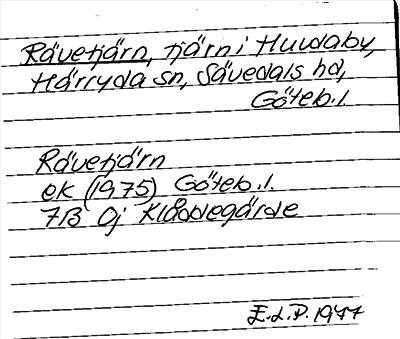 Rävetjärn, tjärn i Huvdaby,
Härryda sn, Sävedals hd,
Göteb. l.
Rävetjärn
ek (1975) Göteb. l.
7B 0j Klåvdegärde
E.L.P. 1977